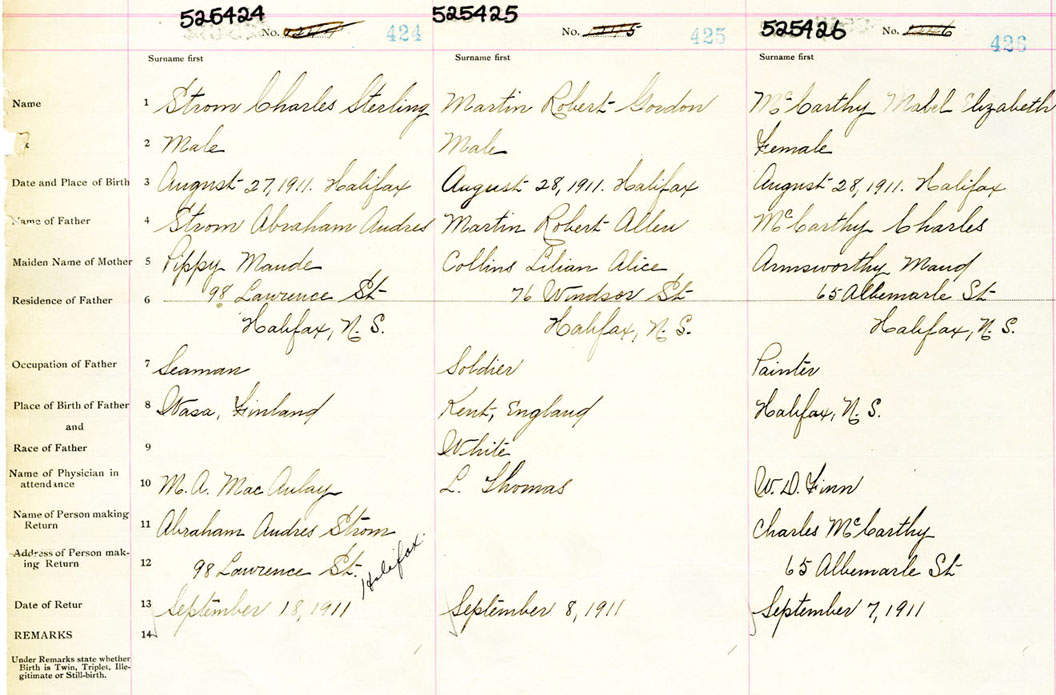 525424 525425 525426
No. 424 No. 425 No. 426
Surname first Surname first Surname first
Name 1 Strom Charles Sterling Martin Robert Gordon McCarthy Mabel Elizabeth
2 Male Male Female
Date and Place of Birth 3 August 27, 1911. Halifax August 28, 1911. Halifax August 28, 1911. Halifax
Name of Father 4 Strom Abraham Andres Martin Robert Allen McCarthy Charles
Maiden Name of Mother 5 Pippy Maude Collins Lilian Alice Armsworthy Maud
Residence of Father 6 98 Lawrence St 76 Windsor St 65 Albemarle St
Halifax, N.S. Halifax, N.S. Halifax, N.S.
Occupation of Father 7 Seaman Soldier Painter
Place of Birth of Father 8 Wasa, Finland Kent, England Halifax, N.S.
and
Race of Father 9 White
Name of Physician in
attendance 10 M. A. MacAulay L. Thomas W. D. Finn
Name of Person making
Return 11 Abraham Andres Strom Charles McCarthy
Address of Person mak-
ing Return 12 98 Lawrence St. Halifax. 65 Albemarle St
Date of Retur 13 September 18, 1911 September 8, 1911 September 7, 1911
REMARKS 14
Under Remarks state whether
Birth is Twin, Triplet, Ille-
gitimate or Still-birth.